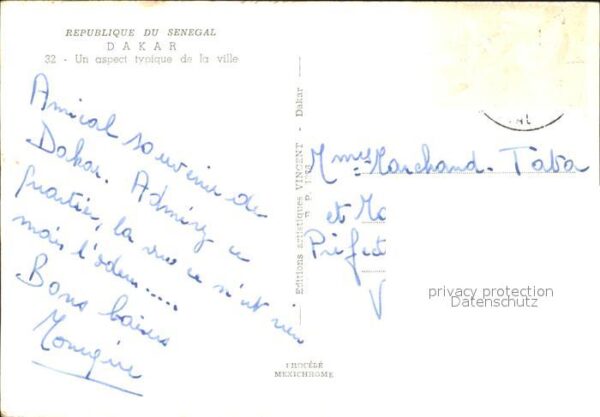 REPUBLIQUE DU SENEGAL
DAKAR
32 - Un aspect typique de la ville
Amical souvenir de
Dakar. Admirez ce
quartier, la vue ce n'est rien
mais l'odeur.....
Bons baisers
Editions artistiques VINCENT - Dakar
B. P.
Mmes Marchand-Taba
et Ma
Préfect
V
privacy protection
Datenschutz
PROCÉLÉ
MEXICHROME